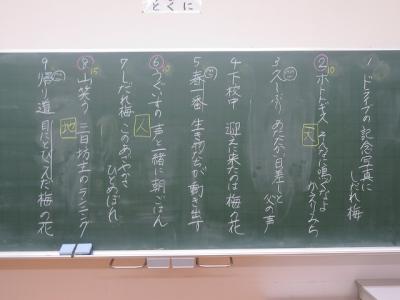 とくに
1 ドライブの記念写真に
しだれ梅
② ホトトギス そんなに鳴くなよ
10
かえりみち
天
3 久しぶり あたたか日差しと
父の声
4 下校中 迎えに来たは梅の花
5 春一番 生き物たちが動き出す
⑥ うぐいすの 声と一緒に朝ごはん
10
人
7 しだれ梅 このあざやかさ
ひとめぼれ
⑧ 山笑う 三日坊主のランニング
15
地
9 帰り道 目にとびこんだ梅の花